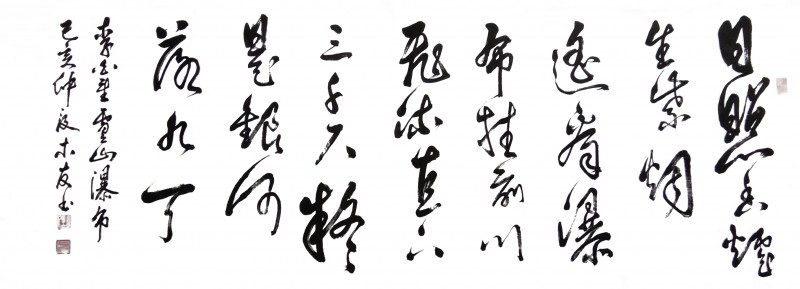 日照香爐
生紫烟
遥看瀑
布挂前川
飛流直下
三千尺疑
是銀河
落九天
李白望廬山瀑布
己亥仲夏 友书